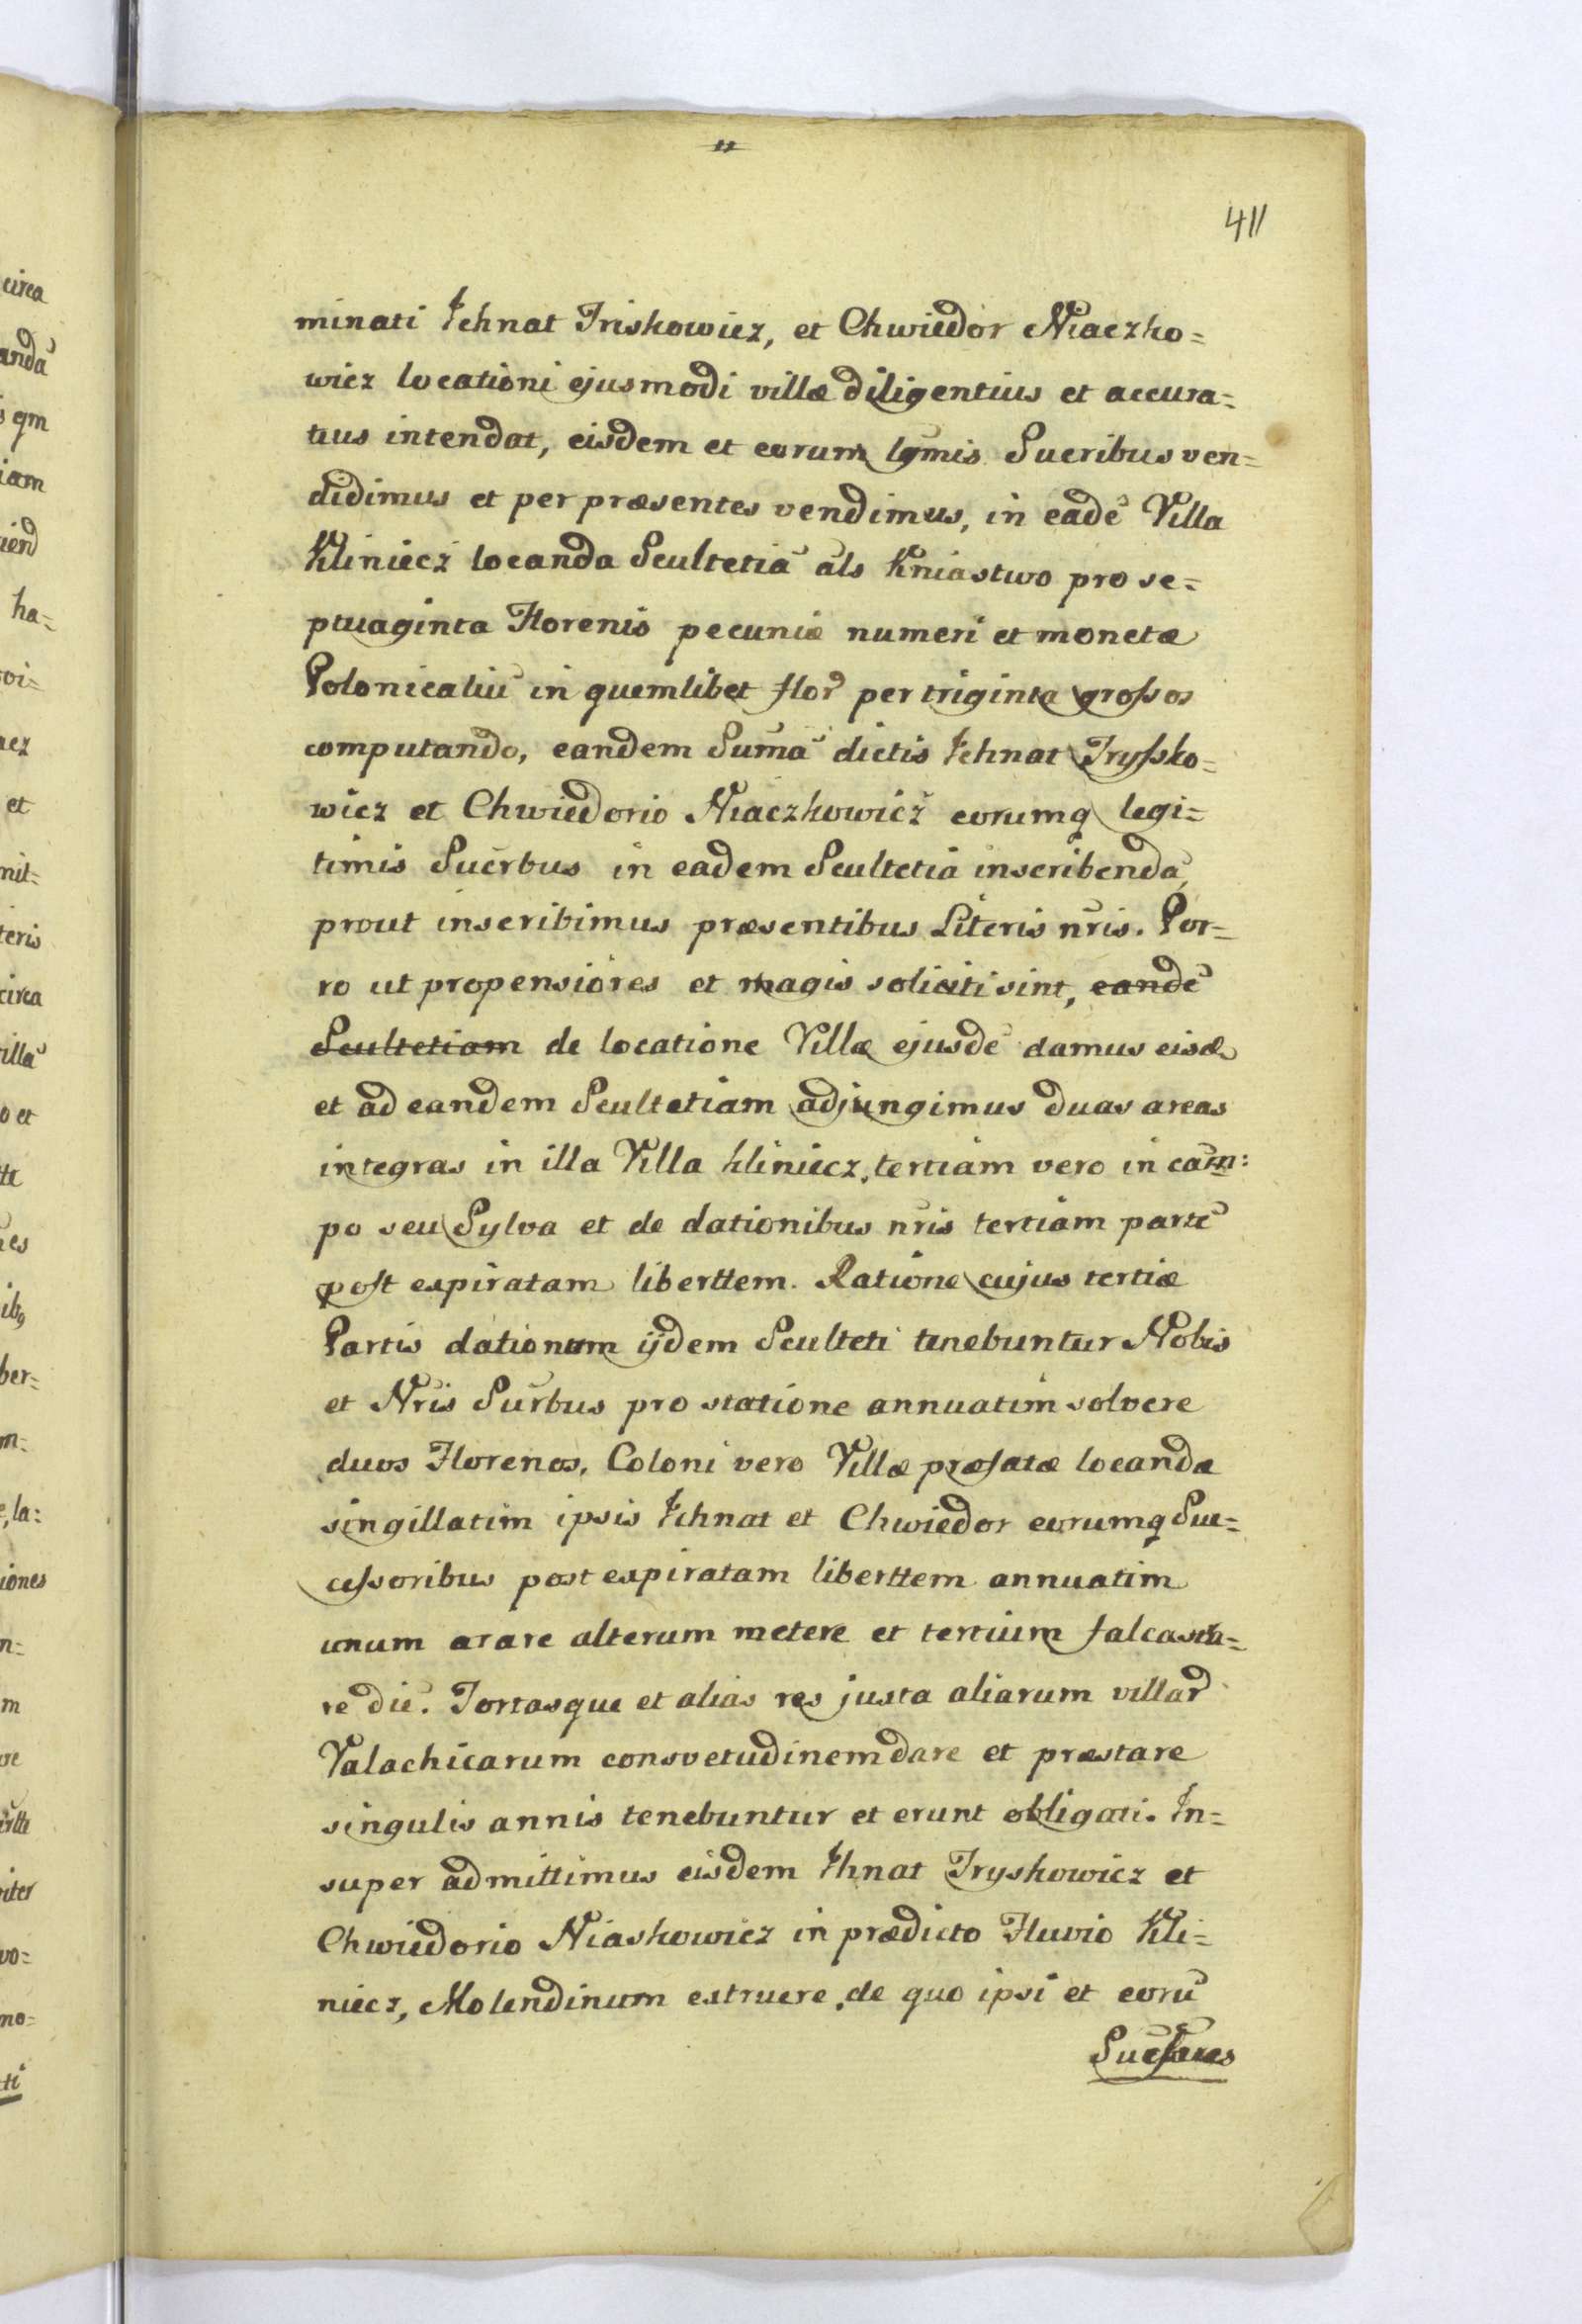 411
minati Jchnat Triskowicz, et Chwiedor Niaczko=
wicz locationi ejusmodi villæ diligentius et accura=
tius intendat, eisdem et eorum lgmis Sucribus ven=
didimus et per præsentes vendimus, in eadē Villa
Kliniecz locanda Scultetiā als Kniastwo pro se=
ptuaginta Florenis pecuniæ numeri et monetæ
Polonicaliū in quemlibet flor per triginta grossos
computando, eandem Sumā dictis Jchnat Tryssko=
wicz et Chwiedorio Niaczkowicz eorumq legi=
timis Sucrbus in eadem Scultetia inscribendā
prout inscribimus præsentibus Literis nris. Por=
ro ut propensiores et magis soliciti sint, eandē
Scultetiam de locatione Villæ ejusdē damus eisd
et ad eandem Scultetiam adjungimus duas areas
integras in illa Villa Kliniecz, tertiam vero in cam:
po seu Sylva et de dationibus nris tertiam partē
post expiratam liberttem. Ratione cujus tertiæ
Partis dationum ijdem Sculteti tenebuntur Nobis
et Nris Surbus pro statione annuatim solvere
duos Florenos, Coloni vero Villæ præfatæ locandæ
singillatim ipsis Jchnat et Chwiedor eorumq Suc=
cessoribus post expiratam liberttem annuatim
unum arare alterum metere et tertium falcastra=
re diē. Tortasque et alias res juxta aliarum villar
Valachicarum consvetudinem dare et præstare
singulis annis tenebuntur et erunt obligati. In=
super admittimus eisdem Ihnat Tryskowicz et
Chwiedorio Niaskowicz in prædicto Fluvio Kli=
niecz, Molendinum extruere, de quo ipsi et eorū
Sucssores
circa
andā
s qm
iam
iend
ha=
voi=
et
mit=
teris
circa
villā
o et
ber=
m=
e, la:
iones
n=
m
vo=
mo=
ti